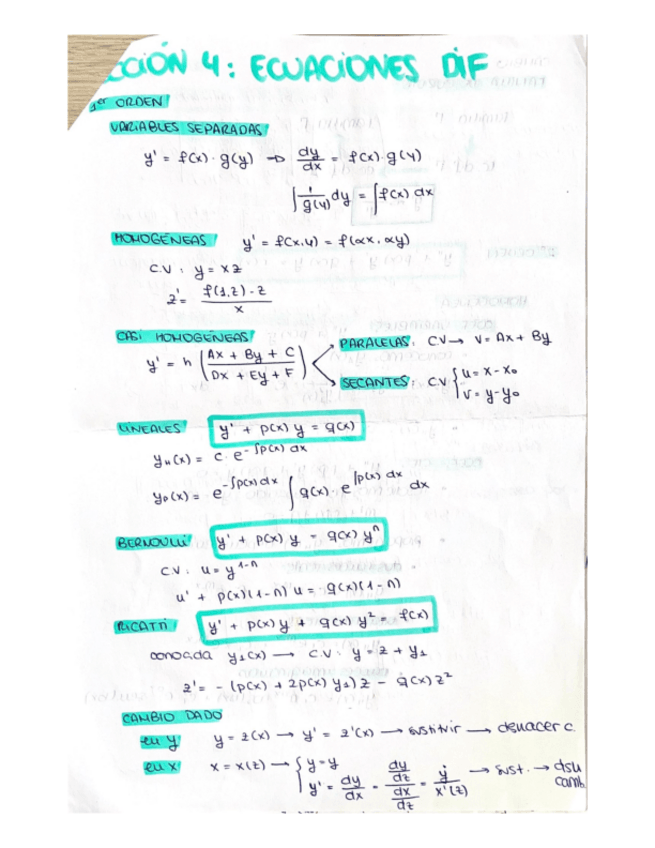 CCIÓN 4: ECUACIONES DIF
1er ORDEN
VARIABLES SEPARADAS
y' = f(x) · g(y) → dy/dx = f(x) · g(y)
∫ 1/g(y) dy = ∫ f(x) dx
HOMOGÉNEAS y' = f(x,y) = f(αx, αy)
C.V: y = xz
z' = f(1,z) - z / x
CASI HOMOGÉNEAS
y' = h (Ax + By + C / Dx + Ey + F)
PARALELAS: C.V → V = Ax + By
SECANTES: C.V { u = x - x₀
v = y - y₀
LINEALES y' + p(x) y = q(x)
yH(x) = c · e^-∫p(x) dx
yp(x) = e^-∫p(x) dx ∫ q(x) · e^∫p(x) dx dx
BERNOULLI y' + p(x) y = q(x) y^n
C.V: u = y^1-n
u' + p(x)(1-n) u = q(x)(1-n)
RICATTI y' + p(x) y + q(x) y² = f(x)
conocida y₁(x) → C.V: y = z + y₁
z' = - (p(x) + 2p(x) y₁) z - q(x) z²
CAMBIO DADO
en y y = z(x) → y' = z'(x) → sustituir → deshacer c.
en x x = x(z) → { y = y
y' = dy/dx = dy/dz / dx/dz = ẏ / x'(z) → sust. → dsh
camb.